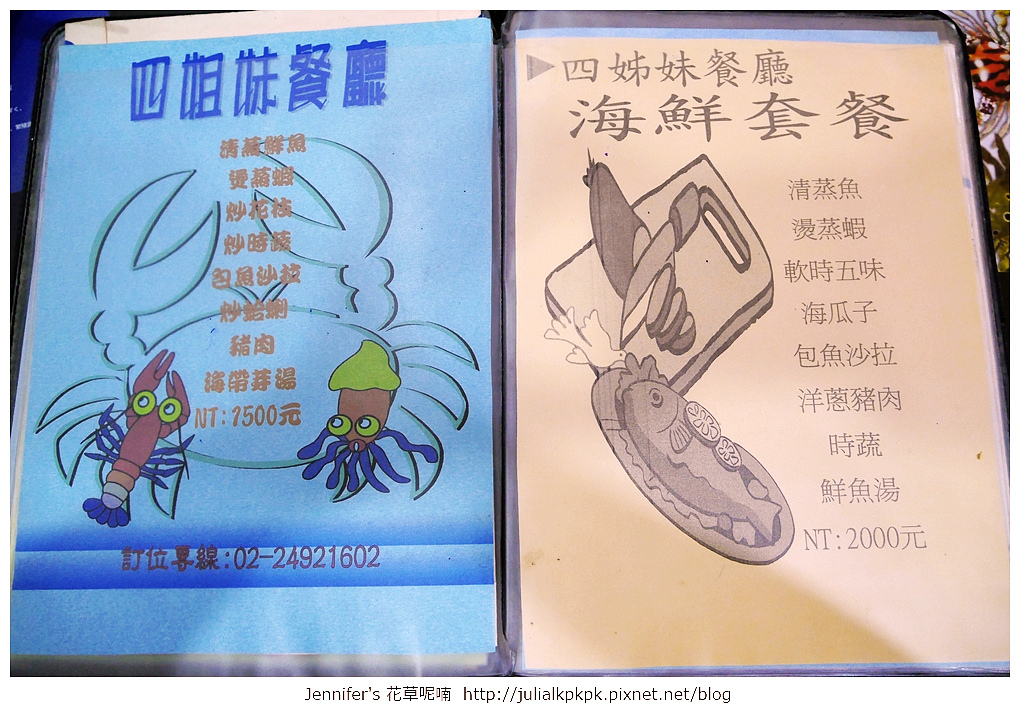 四姐妹餐廳
清蒸鮮魚
燙蒸蝦
炒花枝
炒時蔬
包魚沙拉
炒蛤蜊
豬肉
海帶芽湯
NT:1500元
訂位專線:02-24921602
四姊妹餐廳
海鮮套餐
清蒸魚
燙蒸蝦
軟時五味
海瓜子
包魚沙拉
洋蔥豬肉
時蔬
鮮魚湯
NT:2000元
Jennifer's 花草呢喃 http://julialkpkpk.pixnet.net/blog